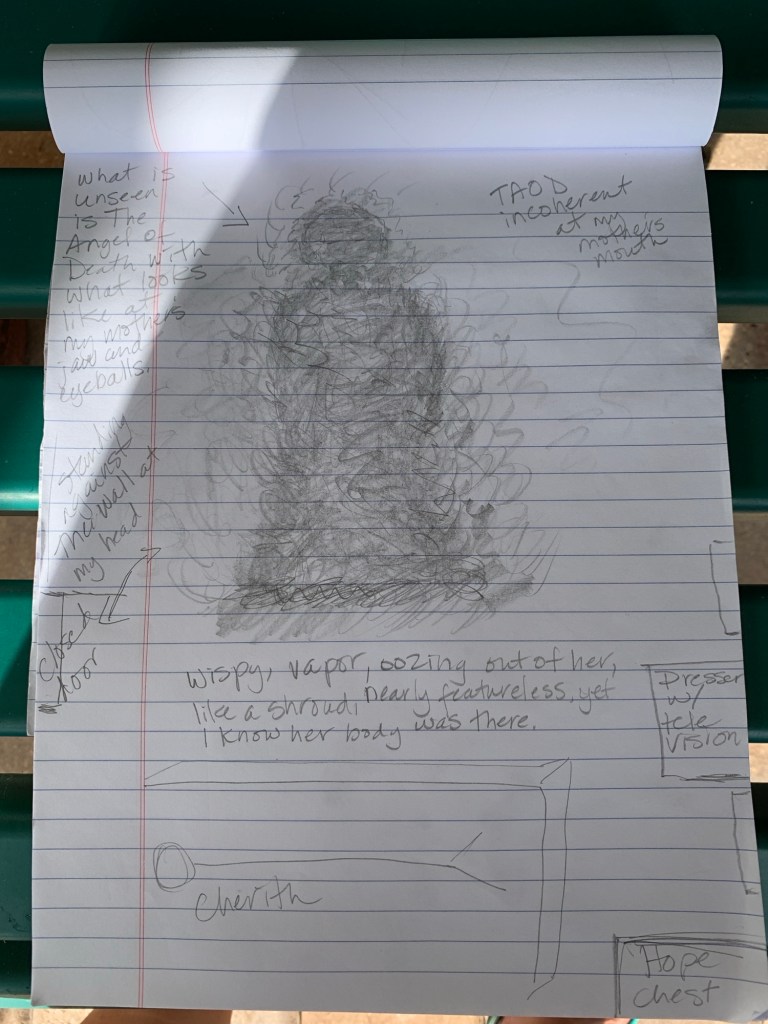 what is
unseen
is The
Angel of
Death with
what looks
like at
my mothers
jaw and
eyeballs.
TAOD
incoherent
at my
mothers
mouth
standing
against
The wall at
my head
closed
door
wispy, vapor, oozing out of her,
like a shroud, nearly featureless, yet
I know her body was there.
Dresser
w/
tele
vision
Cherith
Hope
chest